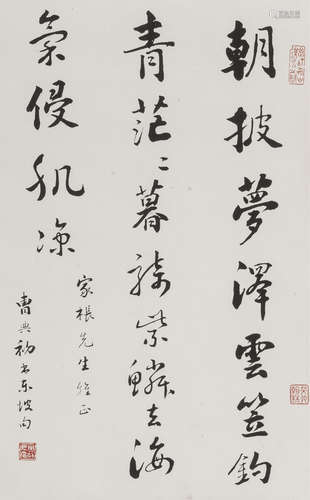 朝披夢澤雲笠釣
青茫〻暮騎紫鱗去海
氣侵肌涼
家根先生雅正
曹典初書東坡句